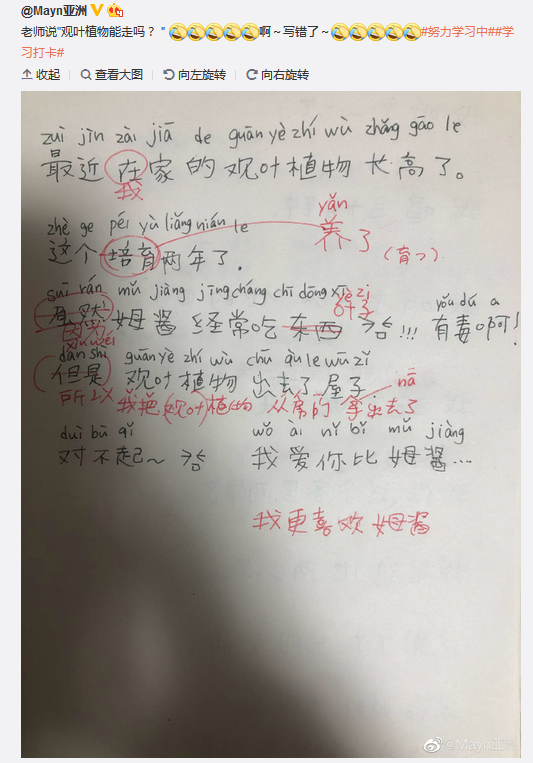 @Mayn亚洲
老师说"观叶植物能走吗？" 😂😂😂😂😂啊～写错了～😂😂😂😂😂#努力学习中##学
习打卡#
收起 查看大图 向左旋转 向右旋转
zuì jìn zài jiā de guān yè zhí wù zhǎng gāo le
最近在家的观叶植物长高了。
我
zhè ge péi yù liǎng nián le yǎn
这个培育两年了. 养了
(育つ)
suī rán mǔ jiàng jīng cháng chī dōng xī yè zi yǒu dú a
虽然姆酱经常吃东西 叶子 !!! 有毒啊!
因为
yīn wèi
dàn shì guān yè zhí wù chū qù le wū zǐ
但是观叶植物出去了屋子. ná
所以我把观叶植物从房间拿出去了
duì bù qǐ wǒ ài nǐ bǐ mǔ jiàng
对不起～ 我爱你比姆酱…
我更喜欢姆酱
@Mayn亚洲